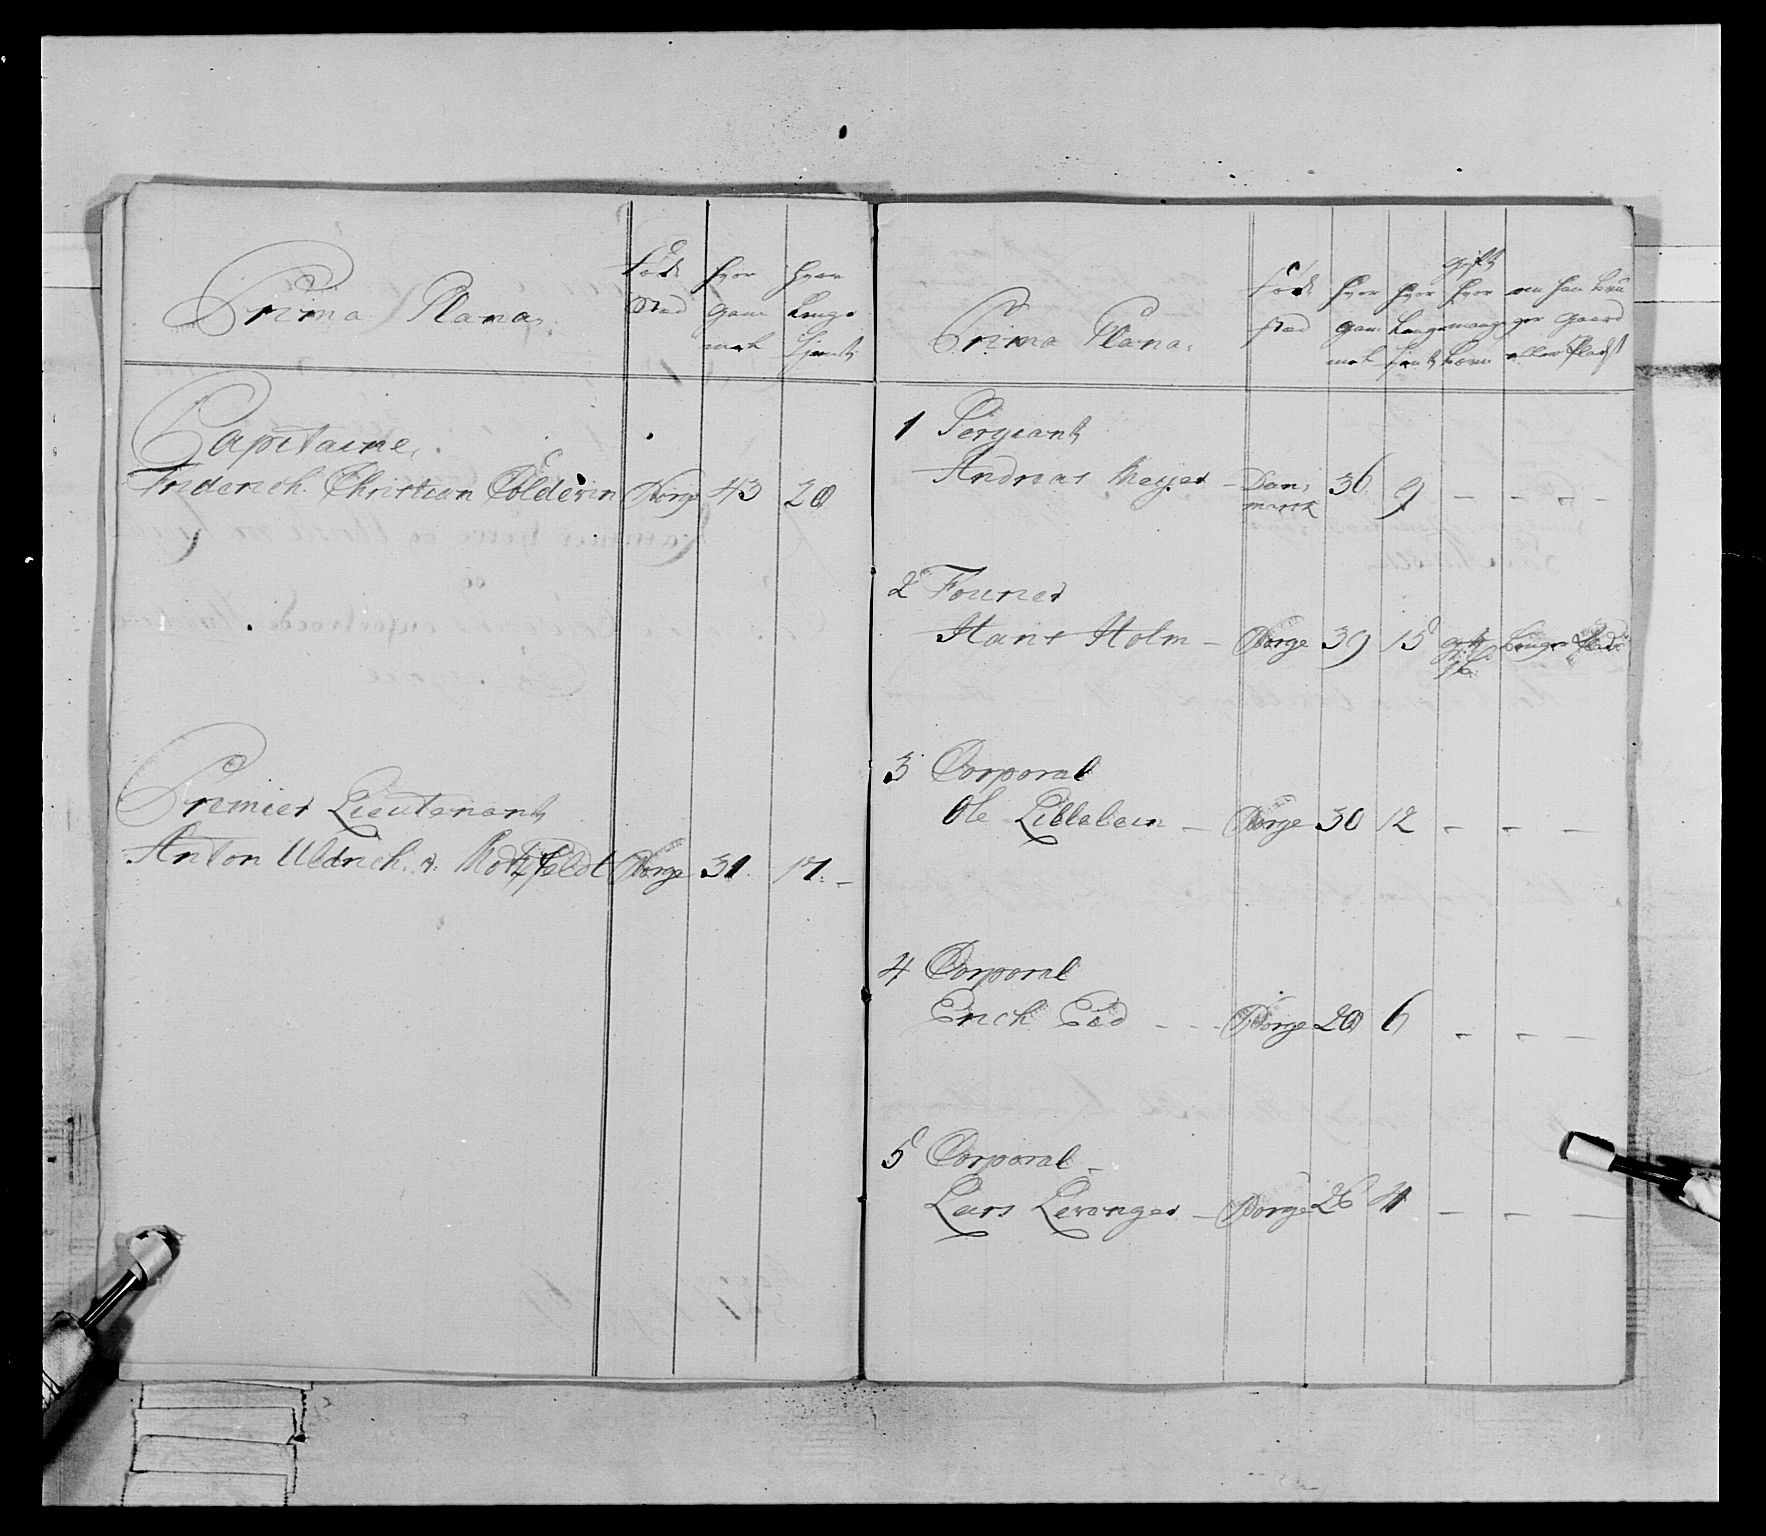 Prima Plana,
Føde
Stad
hvor
gam
mel
hvor
Lenge
tjent
Capitaine,
Friderich Christian Coldevin Norge 43 20
Premier Lieutenant
Anton Uldrich v. Motzfeldt Norge 31 17 -
Prima Plana,
Føde
stad
hvor
gam
mel
hvor
Lenge
tient
gift
hvor
mange
børn
om han bru
ger gaard
eller Pladst
1 Sergeant
Andreas Meyer - Dan, 36 9 - - - -
marck
2 Fourier
Hans Holm - Norge 39 15 gift bruger Plads
3 Corporal
Ole Lillebeen - Norge 30 12 - - -
4 Corporal
Erich Eid - - Norge 20 6 - - -
5 Corporal -
Lars Levanger - Norge 26 11 - - -